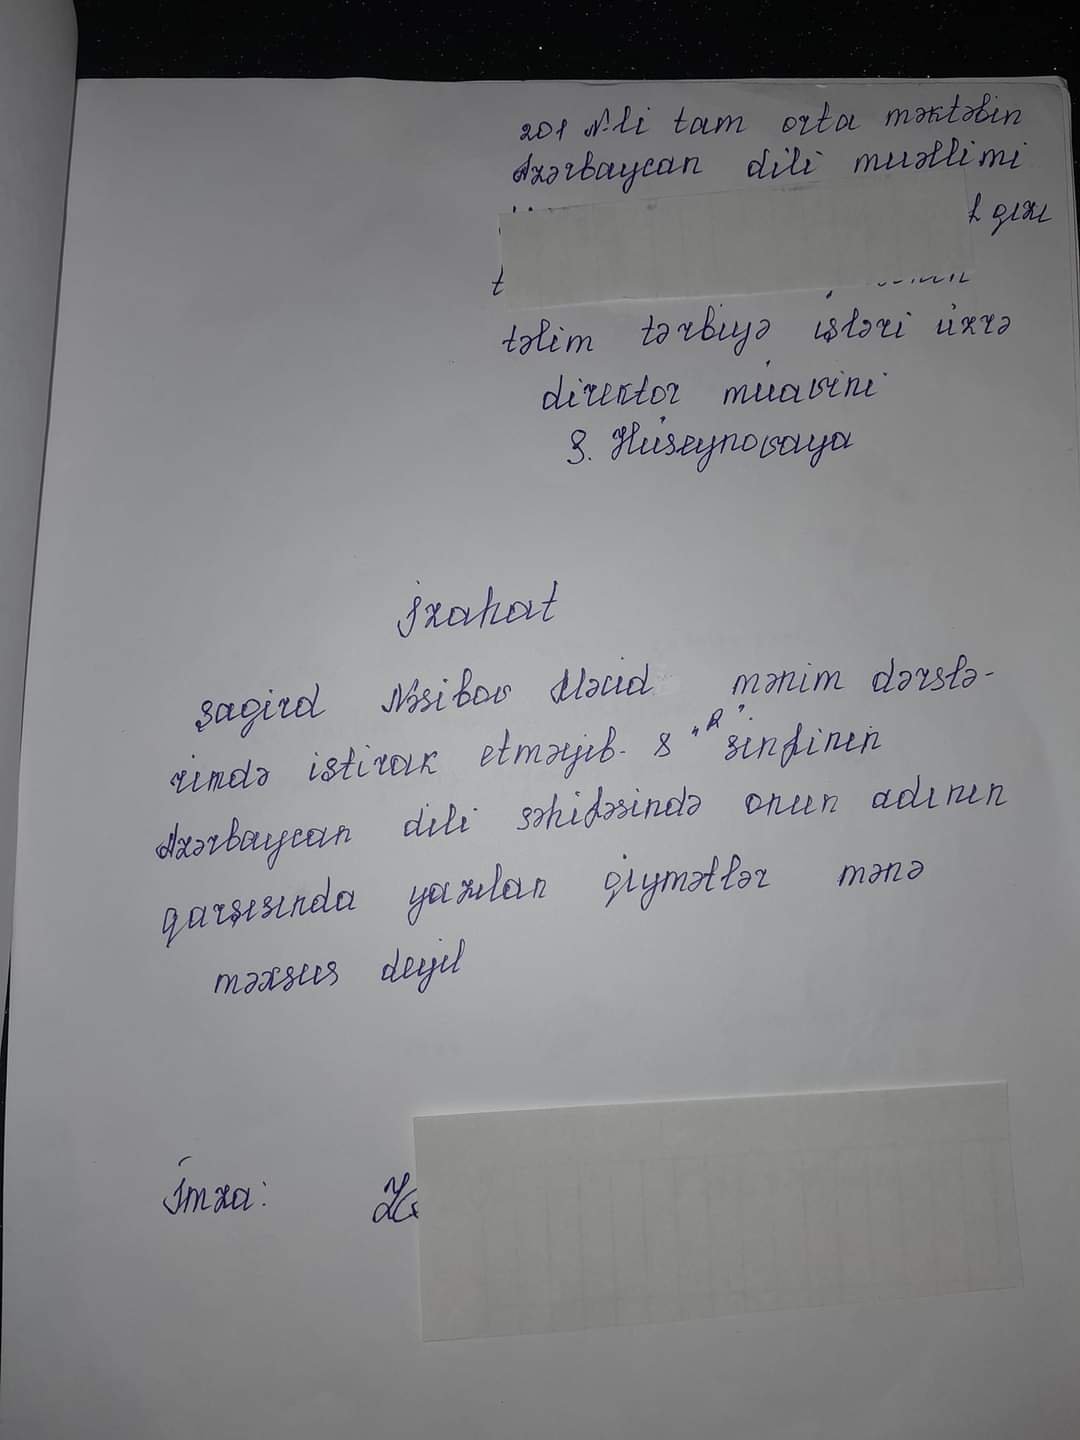 201 №-li tam orta məktəbin
Azərbaycan dili muəllimi
qızı
təlim tərbiyə işləri üzrə
direktor müavini
S. Hüseynovaya
İzahat
şagird Nəsibov Məcid mənim dərslə-
rimdə iştirak etməyib. 8 "A" sinfinin
Azərbaycan dili səhifəsində onun adının
qarşısında yazılan qiymətlər mənə
məxsus deyil
İmza: